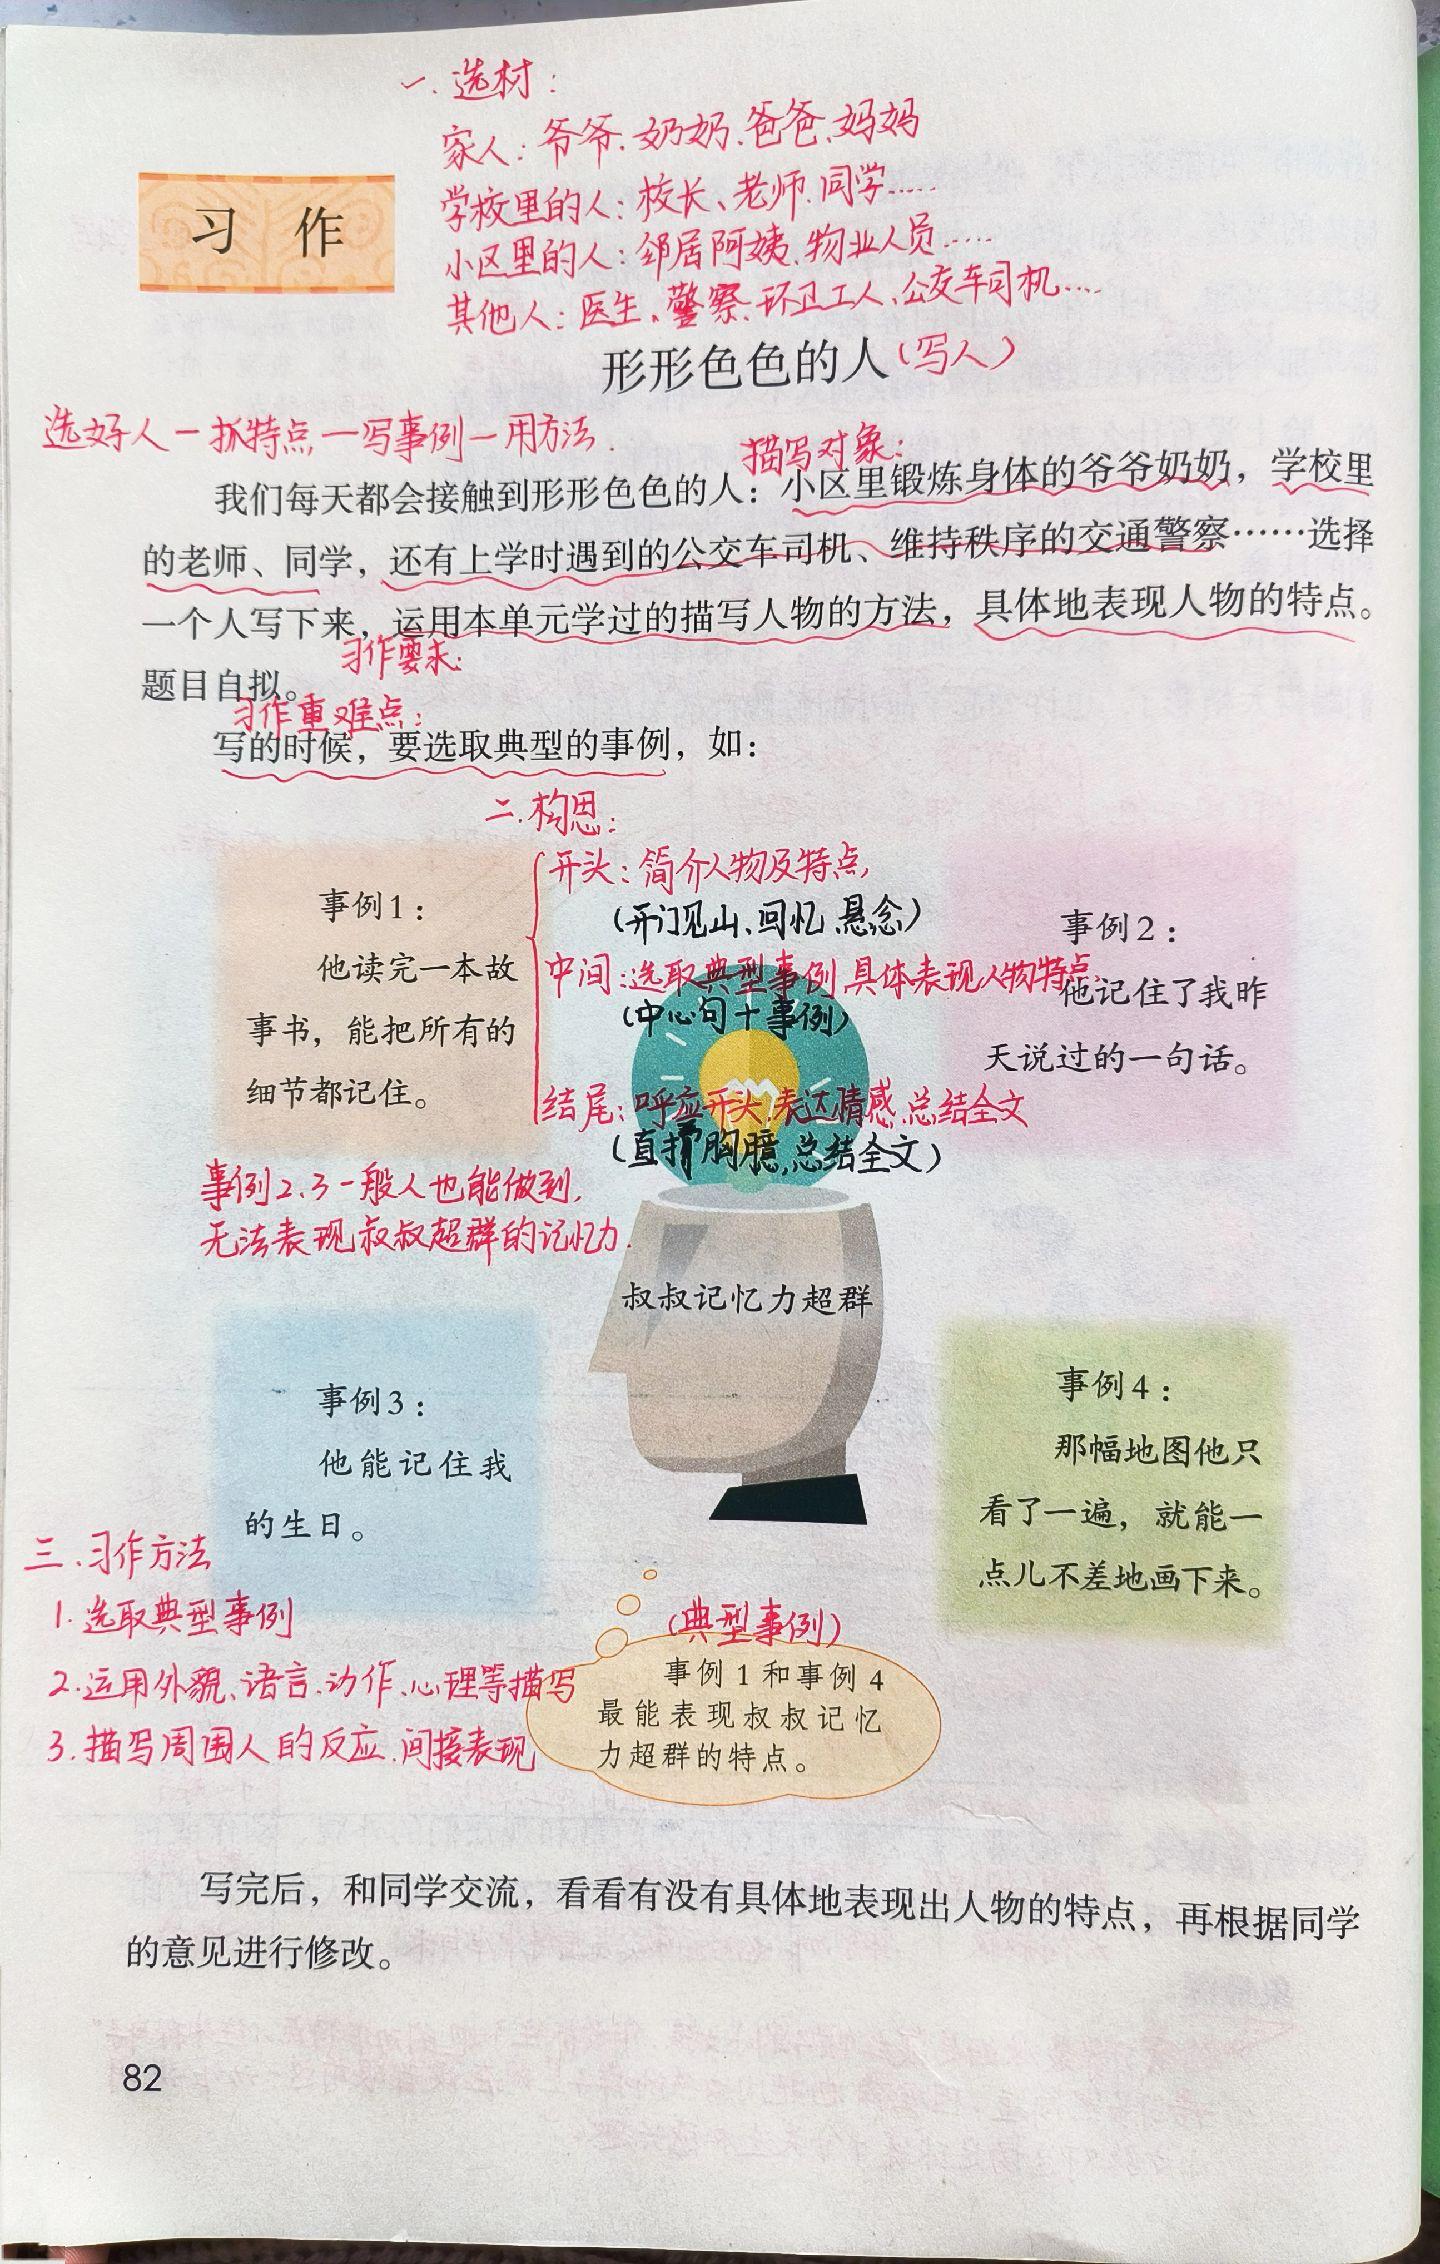 一.选材：
家人：爷爷、奶奶、爸爸、妈妈
学校里的人：校长、老师、同学……
小区里的人：邻居阿姨、物业人员……
其他人：医生、警察、环卫工人、公交车司机……
习 作
形形色色的人(写人)
选好人一抓特点一写事例一用方法.
描写对象：
我们每天都会接触到形形色色的人：小区里锻炼身体的爷爷奶奶，学校里
的老师、同学，还有上学时遇到的公交车司机、维持秩序的交通警察……选择
一个人写下来，运用本单元学过的描写人物的方法，具体地表现人物的特点。
习作要求：
题目自拟。
习作重难点：
写的时候，要选取典型的事例，如：
二.构思：
开头：简介人物及特点,
(开门见山、回忆、悬念)
中间：选取典型事例,具体表现人物特点,
(中心句+事例)
结尾：呼应开头.表达情感.总结全文
(直抒胸臆.总结全文)
事例1：
他读完一本故
事书，能把所有的
细节都记住。
事例2：
他记住了我昨
天说过的一句话。
事例2、3一般人也能做到,
无法表现叔叔超群的记忆力.
叔叔记忆力超群
事例3：
他能记住我
的生日。
事例4：
那幅地图他只
看了一遍，就能一
点儿不差地画下来。
三、习作方法
1.选取典型事例
2.运用外貌、语言、动作、心理等描写
3.描写周围人的反应.间接表现
(典型事例)
事例1和事例4
最能表现叔叔记忆
力超群的特点。
写完后，和同学交流，看看有没有具体地表现出人物的特点，再根据同学
的意见进行修改。
82